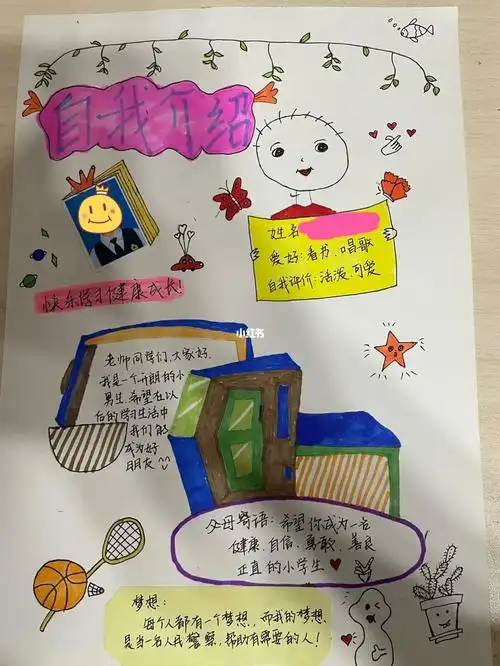 自我介绍
姓名
爱好:看书、唱歌
自我评价:活泼、可爱
快乐学习健康成长!
小红书
老师同学们,大家好.
我是一个开朗的小
男生.希望在以
后的学习生活中
我们能
成为好
朋友
父母寄语:希望你成为一名
健康、自信、勇敢、善良
正直的小学生
梦想:
每个人都有一个梦想,而我的梦想
是当一名人民警察,帮助有需要的人!